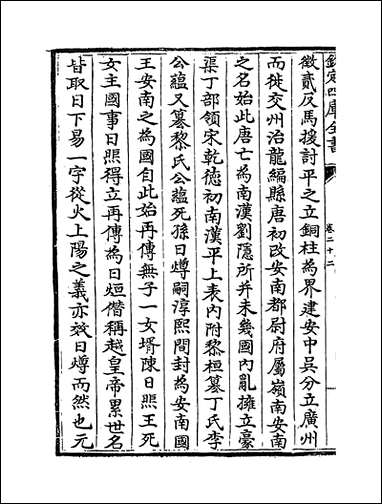 欽定四庫全書
卷二十二
徵貳反馬援討平之立銅柱為界建安中吳分立廣州
而徙交州治龍編縣唐初改安南都尉府屬嶺南安南
之名始此唐亡為南漢劉隱所并未幾國內亂擁立豪
渠丁部領宋乾德初南漢平上表內附黎桓簒丁氏李
公蘊又簒黎氏公蘊死孫日㷬嗣淳熙間封為安南國
王安南之為國自此始再傳無子一女壻陳日照王死
女主國事日照得立再傳為日烜僭稱越皇帝累世名
皆取日下易一字從火上陽之義亦效日㷬而然也元